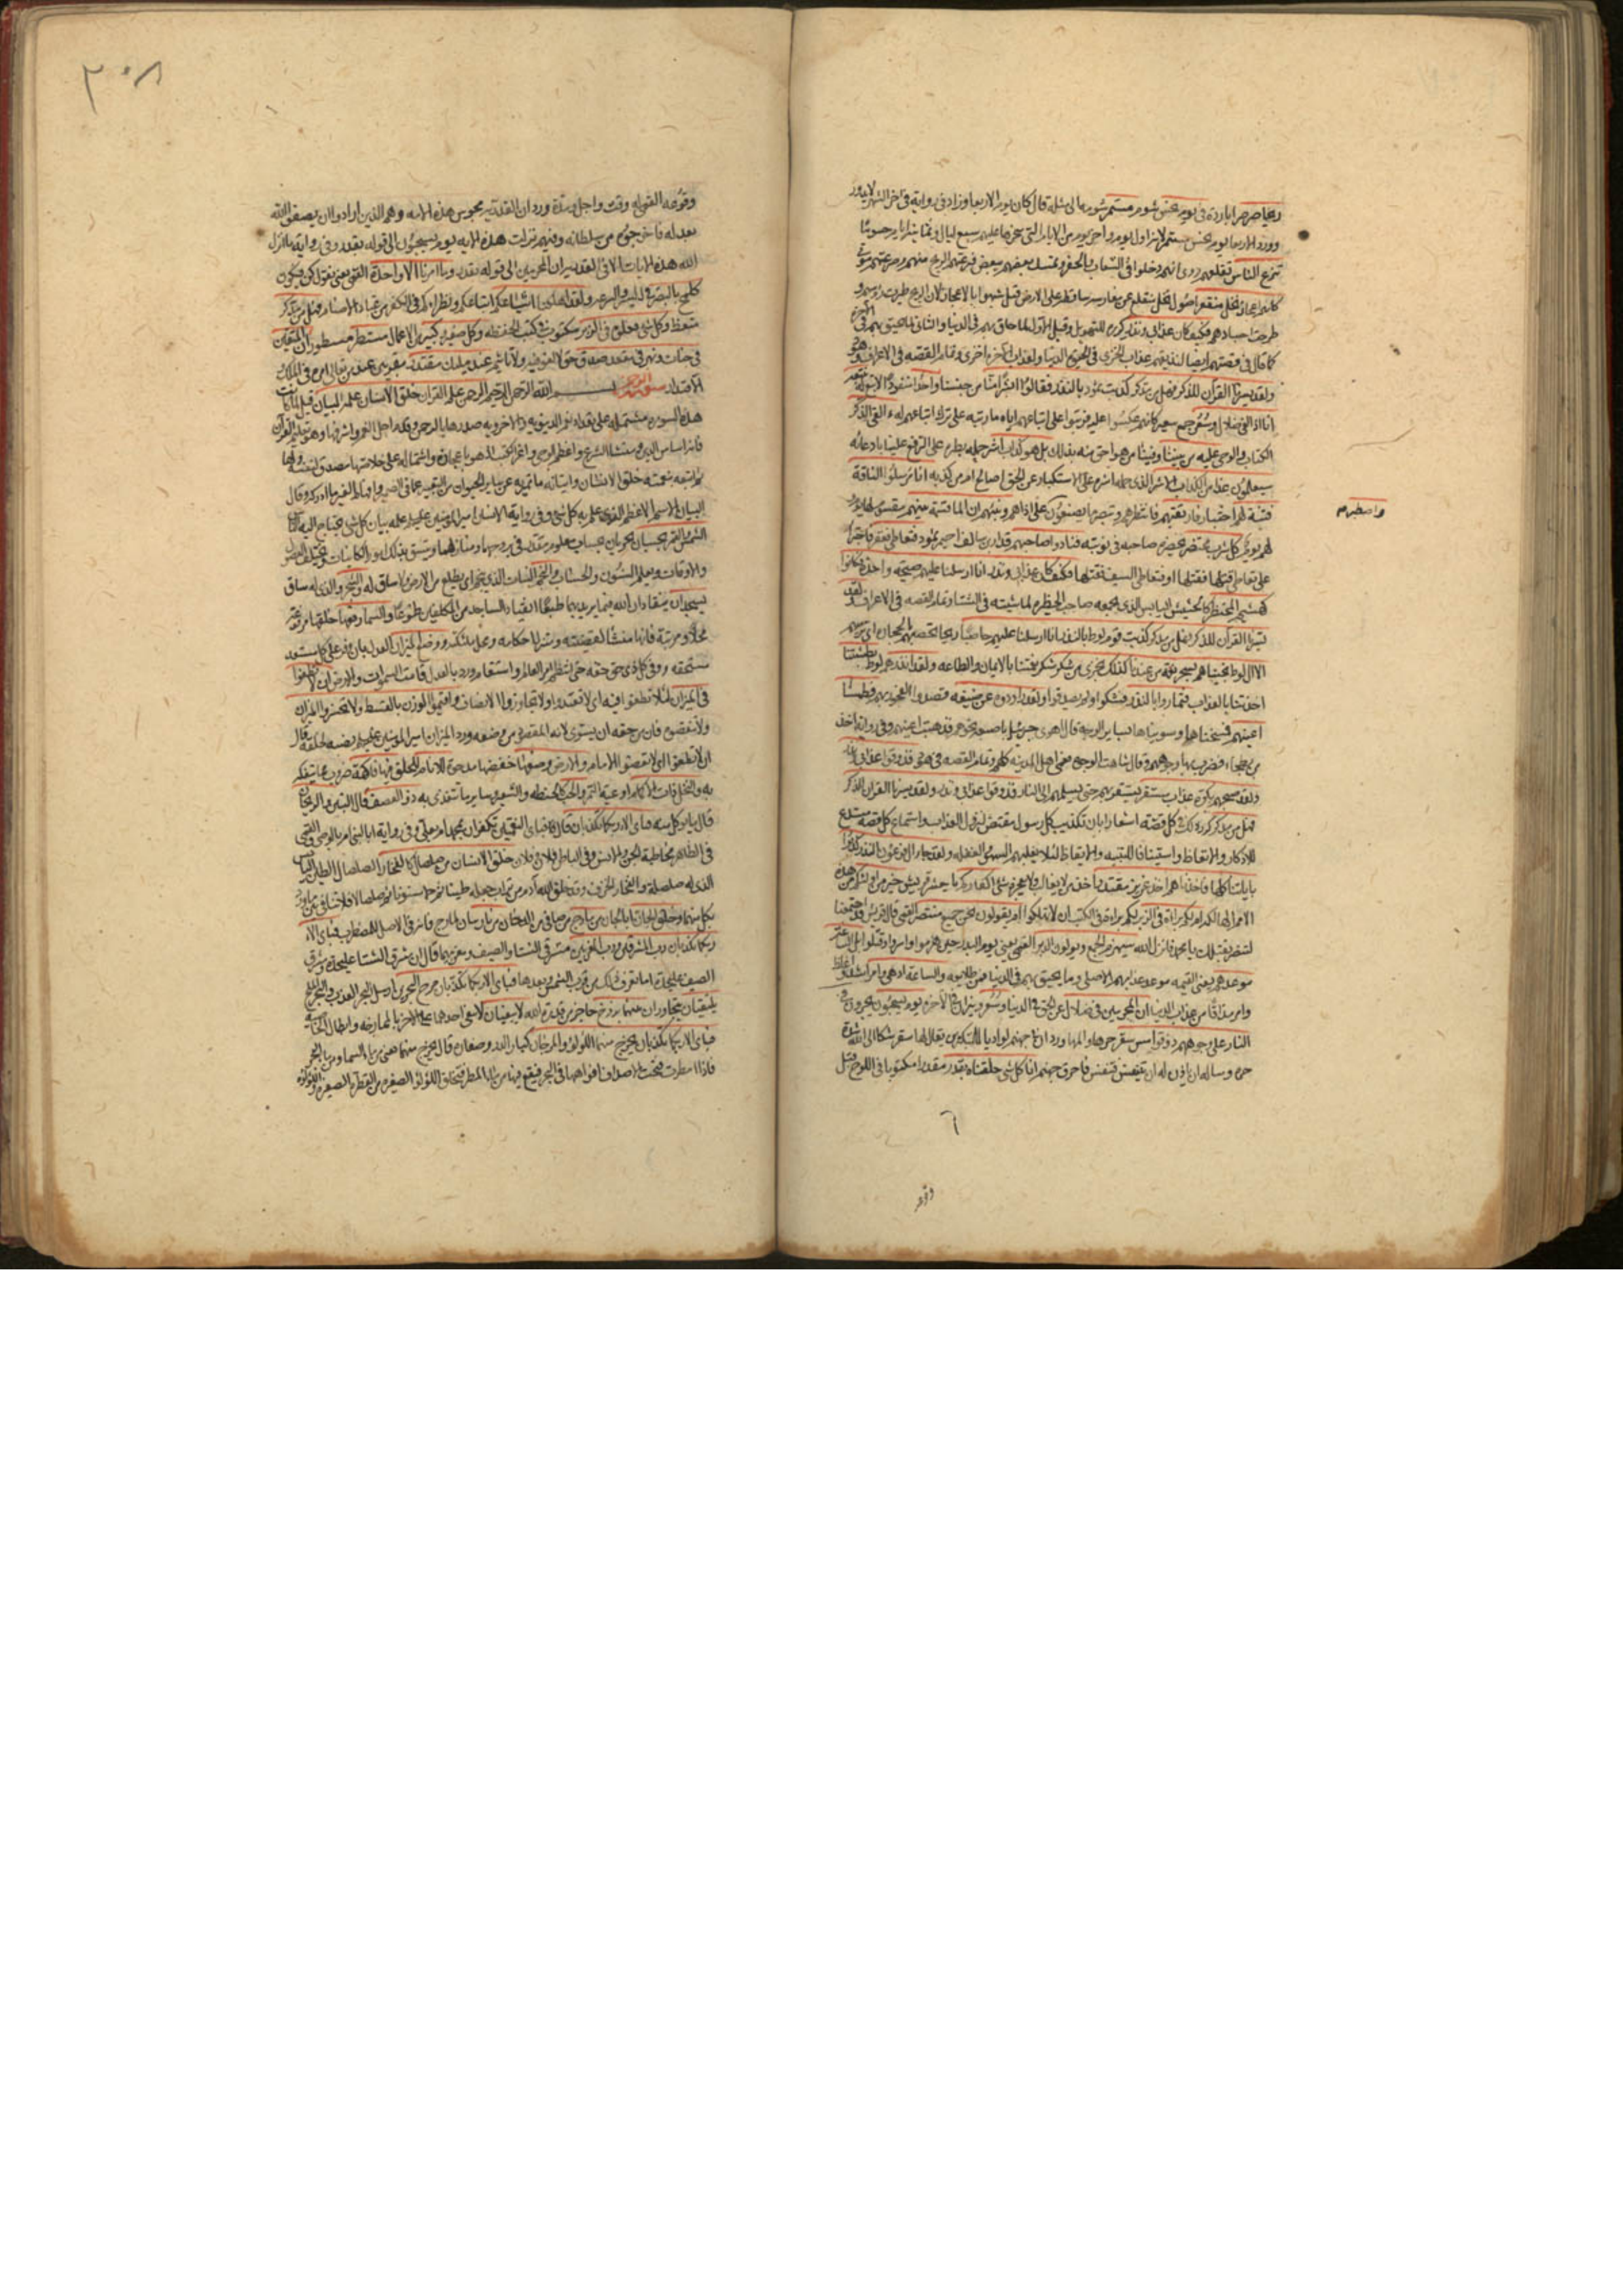 ريحا صرصرا باردة في يوم نحس شوم مستمر شومه الى مثله قال كان يوم الاربعا وزاد في رواية في اخر الشهر لا يدور
وورد الاربعا يوم نحس مستمر لانه اول يوم واخر يوم من الايام التي سخرها عليهم سبع ليال وثمانية ايام حسوما
تنزع الناس تقلعهم روى انهم دخلوا في الشعاب والحفر وتمسك بعضهم ببعض فنزعتهم الريح منهم وصرعتهم موتى
كانهم اعجاز نخل منقعر اصول نخل منقلع عن مغارسه ساقط على الارض قيل شبهوا بالاعجاز لان الريح طيرت رؤسهم و
طرحت اجسادهم فكيف كان عذابي ونذر كرره للتهويل وقيل الاول لما حاق بهم في الدنيا والثاني لما يحيق بهم في الاخرة
كما قال في قصتهم ايضا لنذيقهم عذاب الخزي في الحيوة الدنيا ولعذاب الاخرة اخزى وتمام القصه في الاعراف وهود
ولقد يسرنا القران للذكر فهل من مدكر كذبت ثمود بالنذر فقالوا ابشرا منا من جنسنا واحدا منفردا لا تبع له نتبعه
انا اذا لفي ضلال وسعر جمع سعير كانهم عكسوا عليه فرتبوا على اتباعهم اياه ما رتبه على ترك اتباعهم له ءالقي الذكر
الكتاب والوحي عليه من بيننا وفينا من هو احق منه بذلك بل هو كذاب اشر حمله بطره على الترفع علينا بادعائه
سيعلمون غدا من الكذاب الاشر الذي حمله اشره على الاستكبار عن الحق اصالح ام من كذبه انا مرسلوا الناقة
فتنة لهم اختبارا فارتقبهم فانتظرهم وتبصر ما يصنعون واصطبر على اذاهم ونبئهم ان الماء قسمة بينهم مقسوم لها يوم و
لهم يوم كل شرب محتضر يحضره صاحبه في نوبته فنادوا صاحبهم قدار بن سالف احيمر ثمود فتعاطى فعقر فاجترا
على تعاطي قتلها فقتلها او فتعاطى السيف فقتلها فكيف كان عذابي ونذر انا ارسلنا عليهم صيحة واحدة فكانوا
كهشيم المحتظر كالحشيش اليابس الذي يجمعه صاحب الحظيرة لماشيته في الشتا وتمام القصه في الاعراف ولقد
يسرنا القران للذكر فهل من مدكر كذبت قوم لوط بالنذر انا ارسلنا عليهم حاصبا ريحا تحصبهم بالحجارة اي ترميهم
الا ال لوط نجيناهم بسحر نعمة من عندنا كذلك نجزي من شكر شكر نعمتنا بالايمان والطاعه ولقد انذرهم لوط بطشتنا
اخذتنا بالعذاب فتماروا بالنذر فشكوا ولم يصدقوا ولقد راودوه عن ضيفه قصدوا الفجور بهم فطمسنا
اعينهم فمسخناها وسويناها بساير الوجه قال اهوى جبرئيل باصبعه نحوهم فذهبت اعينهم وفي رواية اخذ
من بطحاء فضرب بها وجوههم وقال شاهت الوجوه فعمي اهل المدينه كلهم وتمام القصه في هود فذوقوا عذابي ونذر
ولقد صبحهم بكرة عذاب مستقر يستقر بهم حتى يسلمهم الى النار فذوقوا عذابي ونذر ولقد يسرنا القران للذكر
فهل من مدكر كرر ذلك في كل قصة اشعارا بان تكذيب كل رسول مقتض لنزول العذاب واستماع كل قصة مستدع
للادكار والاتعاظ واستينافا للتنبيه والايقاظ لئلا يغلبهم السهو والغفله ولقد جاء ال فرعون النذر كذبوا
باياتنا كلها فاخذناهم اخذ عزيز مقتدر لا يغالب ولا يعجزه شي اكفاركم يا معشر قريش خير من اولئكم من هذه
الامم الهالكة ام لكم براءة في الزبر لكم براة في الكتب ان لا تهلكوا ام يقولون نحن جميع منتصر القمي قال قريش قد اجتمعنا
لننتصر بقتلك يا محمد فانزل الله سيهزم الجمع ويولون الدبر القمي يعني يوم بدر حين هزموا واسروا وقتلوا بل الساعة
موعدهم يعني القيمه موعد عذابهم الاصلي وما يحيق بهم في الدنيا فمن طلايعه والساعة ادهى اشد واغلظ
وامر مذاقا من عذاب الدنيا ان المجرمين في ضلال عن الحق في الدنيا وسعر ونيران في الاخرة يوم يسحبون يجرون في
النار على وجوههم ذوقوا مس سقر حرها والمها وورد ان في جهنم لواديا للمتكبرين يقال لها سقر شكا الى الله شدة
حره وساله ان ياذن له ان يتنفس فتنفس فاحرق جهنم انا كل شي خلقناه بقدر مقدرا مكتوبا في اللوح قبل
واصطبرهم
٦
وقوعه
٣٠٨
وقوعه القمي له وقت واجل ومدة وورد ان القدرية مجوس هذه الامه وهم الذين ارادوا ان يصفوا الله
بعدله فاخرجوه من سلطانه وفيهم نزلت هذه الايه يوم يسحبون الى قوله بقدر وفي رواية ما انزل
الله هذه الايات الا في القدرية ان المجرمين الى قوله بقدر وما امرنا الا واحدة القمي يعني نقول كن فيكون
كلمح بالبصر في اليسر والسرعه ولقد اهلكنا اشياعكم اتباعكم ونظراءكم في الكفر من عباد الاصنام فهل من مدكر
متعظ وكل شي فعلوه في الزبر مكتوب في كتب الحفظه وكل صغير وكبير من الاعمال مستطر مسطور ان المتقين
في جنات ونهر في مقعد صدق حق لا لغو فيه ولا تاثيم عند مليك مقتدر مقربين عند من تعالى امره في الملك
والاقتدار سورة الرحمن بسم الله الرحمن الرحيم الرحمن علم القران خلق الانسان علمه البيان قيل لما كانت
هذه السوره مشتمله على تعداد النعم الدنيويه والاخرويه صدرها بالرحمن وقدم اجل النعم واشرفها وهو تعليم القران
فانه اساس الدين ومنشا الشرع واعظم الوحي واعز الكتب اذ هو باعجازه واشتماله على خلاصتها مصدق لنفسه ولها
ثم اتبعه بنعمة خلق الانسان وايتائه ما تميز به عن ساير الحيوان من التعبير عما في الضمير وافهام الغير ما ادركه وقال
البيان الاسم الاعظم الذي علم به كل شي وفي رواية الانسان امير المؤمنين عليه السلام علمه بيان كل شي يحتاج اليه الناس
الشمس والقمر بحسبان يجريان بحساب معلوم مقدر في بروجهما ومنازلهما ويتسق بذلك امور الكاينات وتختلف الفصول
والاوقات ويعلم السنون والحساب والنجم النبات الذي ينجم اي يطلع من الارض ولا ساق له والشجر والذي له ساق
يسجدان ينقادان لله فيما يريد بهما طبعا انقياد الساجد من المكلفين طوعا والسماء رفعها خلقها مرفوعة
محلا ومرتبة فانها منشا اقضيته ومتنزل احكامه ومحل ملائكته ووضع الميزان العدل بان وفر على كل مستعد
مستحقه ووفى كل ذي حق حقه حتى انتظم امر العالم واستقام وورد بالعدل قامت السموات والارض ان لا تطغوا
في الميزان لئلا تطغوا فيه اي لا تعتدوا ولا تجاوزوا الانصاف واقيموا الوزن بالقسط ولا تخسروا الميزان
ولا تنقصوه فان من حقه ان يسوى لانه المقصود من وضعه وورد الميزان امير المؤمنين عليه السلام نصبه لخلقه قال
ان لا تطغوا اي لا تعصوا الامام والارض وضعها خفضها مدحوة للانام للخلق فيها فاكهة ضروب مما يتفكه
به والنخل ذات الاكمام اوعية التمر والحب كالحنطه والشعير وساير ما يتغذى به ذو العصف قال التبن والريحان
قال ما يوكل منه فباي الاء ربكما تكذبان قال فباي النعمتين تكفران بمحمد ام بعلي وفي رواية ابالنبي ام بالوصي والقمي
في الظاهر مخاطبة الجن والانس وفي الباطن فلان وفلان خلق الانسان من صلصال كالفخار الصلصال الطين اليابس
الذي له صلصلة والفخار الخزف وقد خلق الله آدم من تراب جعله طينا ثم حما مسنونا ثم صلصالا
وخلق الجان ابا الجان من مارج من صاف من الدخان من نار بيان لمارج فانه في الاصل للمضطرب فباي الاء
ربكما تكذبان رب المشرقين ورب المغربين مشرقي الشتا والصيف ومغربيهما قال ان مشرق الشتا على حدة ومشرق
الصيف على حدة اما تعرف ذلك من قرب الشمس وبعدها فباي الاء ربكما تكذبان مرج البحرين ارسل البحر العذب والبحر الملح
يلتقيان يتجاوران بينهما برزخ حاجز من قدرة الله لا يبغيان لا يبغي احدهما على الاخر بالممازجه وابطال الخاصية
فباي الاء ربكما تكذبان يخرج منهما اللؤلؤ والمرجان كبار الدر وصغاره قال يخرج منهما يعني من ماء السماء ومن ماء البحر
فاذا امطرت فتحت الاصداف افواهها في البحر فيقع فيها من ماء المطر فتخلق اللؤلؤة الصغيره من القطرة الصغيره واللؤلؤة